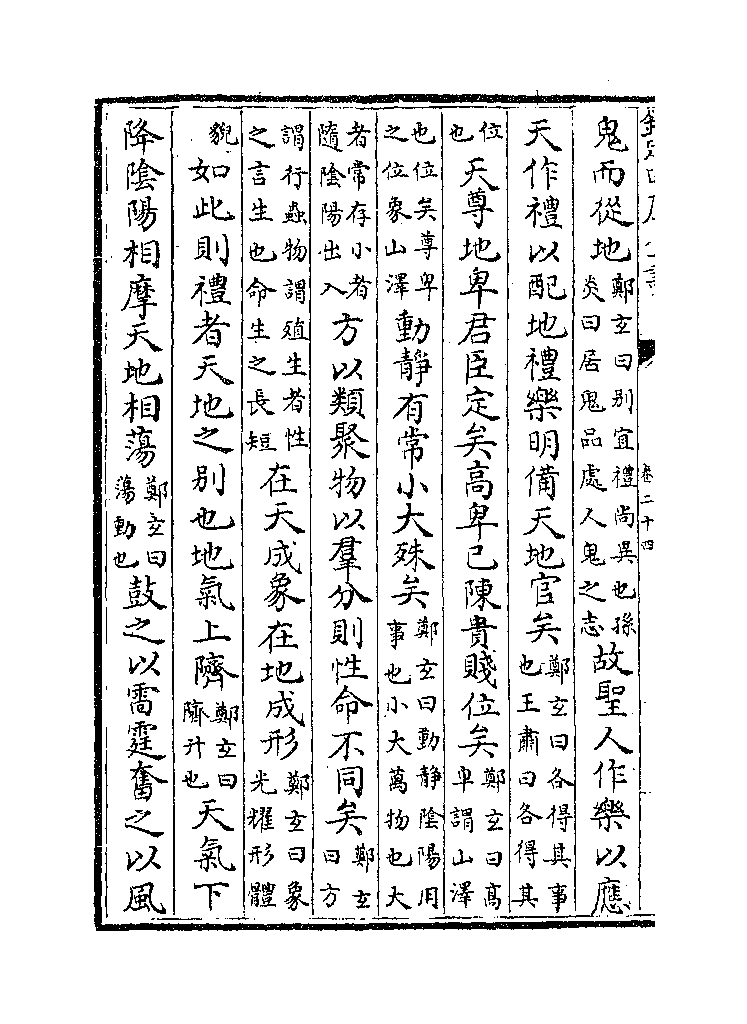 欽定四庫全書
卷二十四
鬼而從地鄭玄曰别宜禮尚異也孫炎曰居鬼品處人鬼之志故聖人作樂以應
天作禮以配地禮樂明備天地官矣鄭玄曰各得其事也王肅曰各得其
位也天尊地卑君臣定矣高卑已陳貴賤位矣鄭玄曰高卑謂山澤
也位矣尊卑之位象山澤動靜有常小大殊矣鄭玄曰動靜陰陽用事也小大萬物也大
者常存小者隨陰陽出入方以類聚物以羣分則性命不同矣鄭玄曰方
謂行蟲物謂殖生者性之言生也命生之長短在天成象在地成形鄭玄曰象光耀形體
貌如此則禮者天地之别也地氣上隮鄭玄曰隮升也天氣下
降陰陽相摩天地相蕩鄭玄曰蕩動也鼓之以雷霆奮之以風